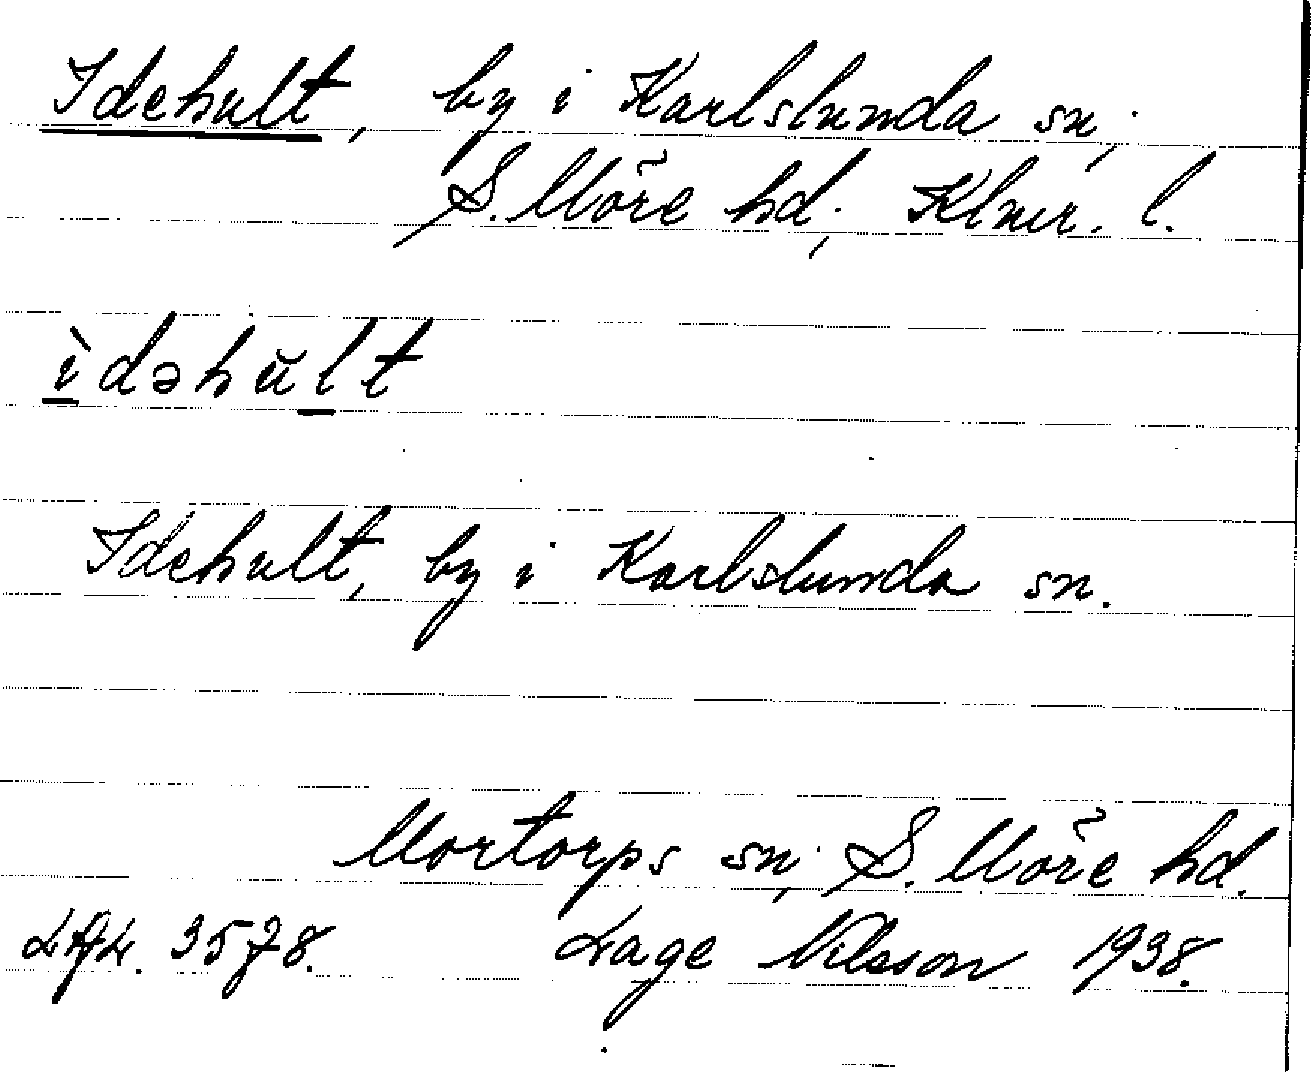 Idehult, by i Karlslunda sn.,
S. Möre hd., Klmr. l.
ìdəhŭlt
Idehult, by i Karlslunda sn.
Mortorps sn., S. Möre hd.
3578. Lage Nilsson 1938.